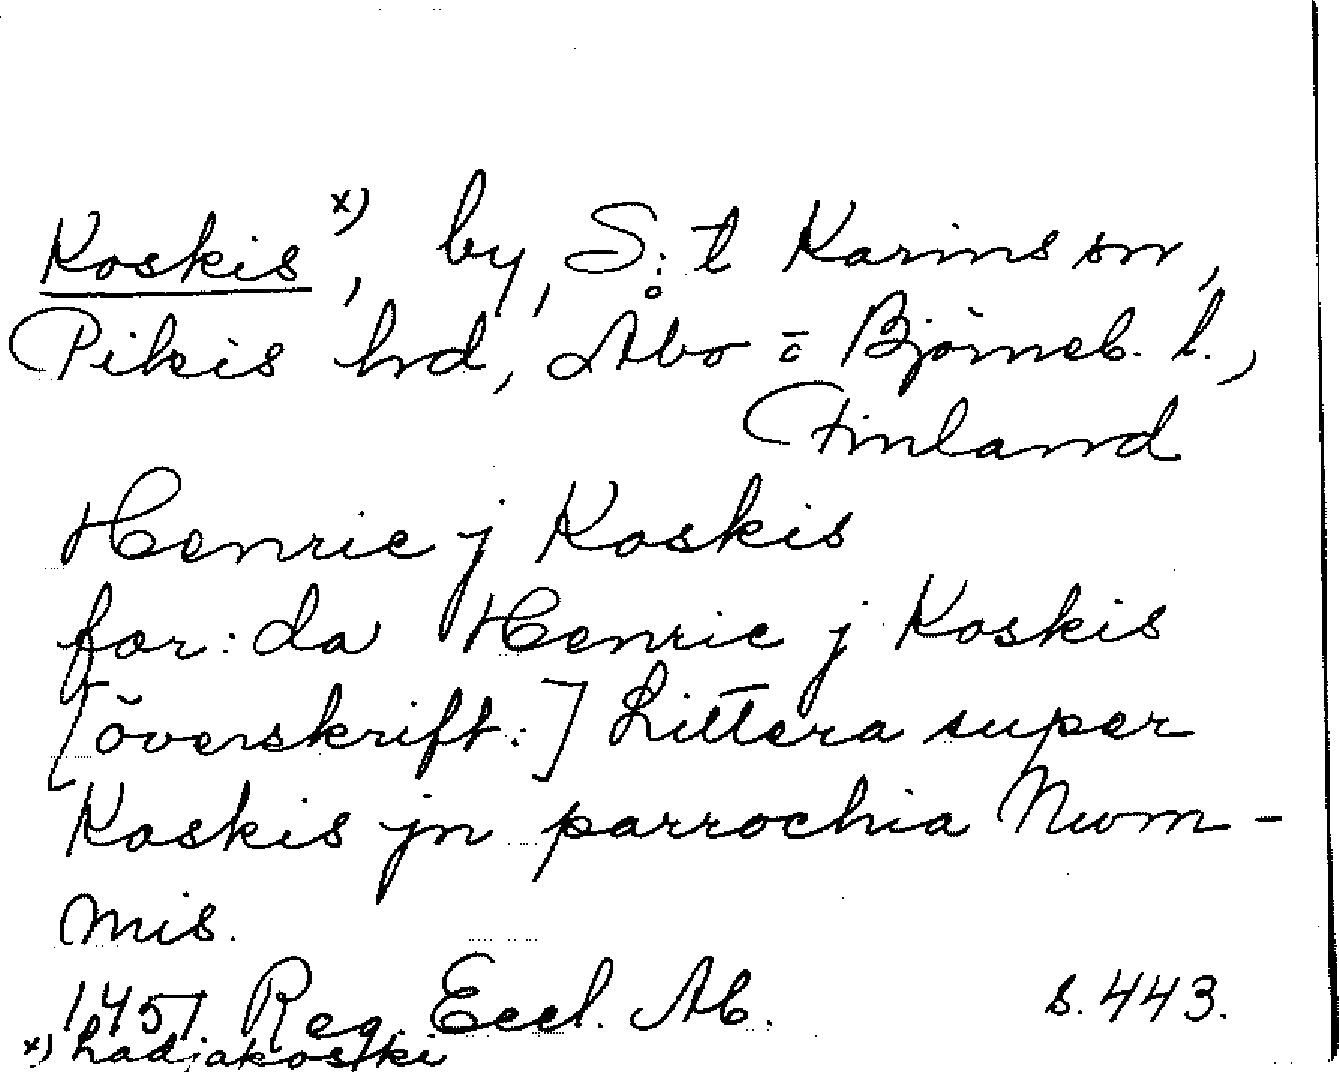 Koskis x), by, S:t Karins sn,
Pikis hd, Åbo o Björneb. l.,
Finland
Henric j Koskis
for: da Henric j Koskis
[överskrift:] Littera super
Koskis jn parrochia Num-
mis.
1457 Reg. Eccl. Ab. s. 443.
x) hadjakoski